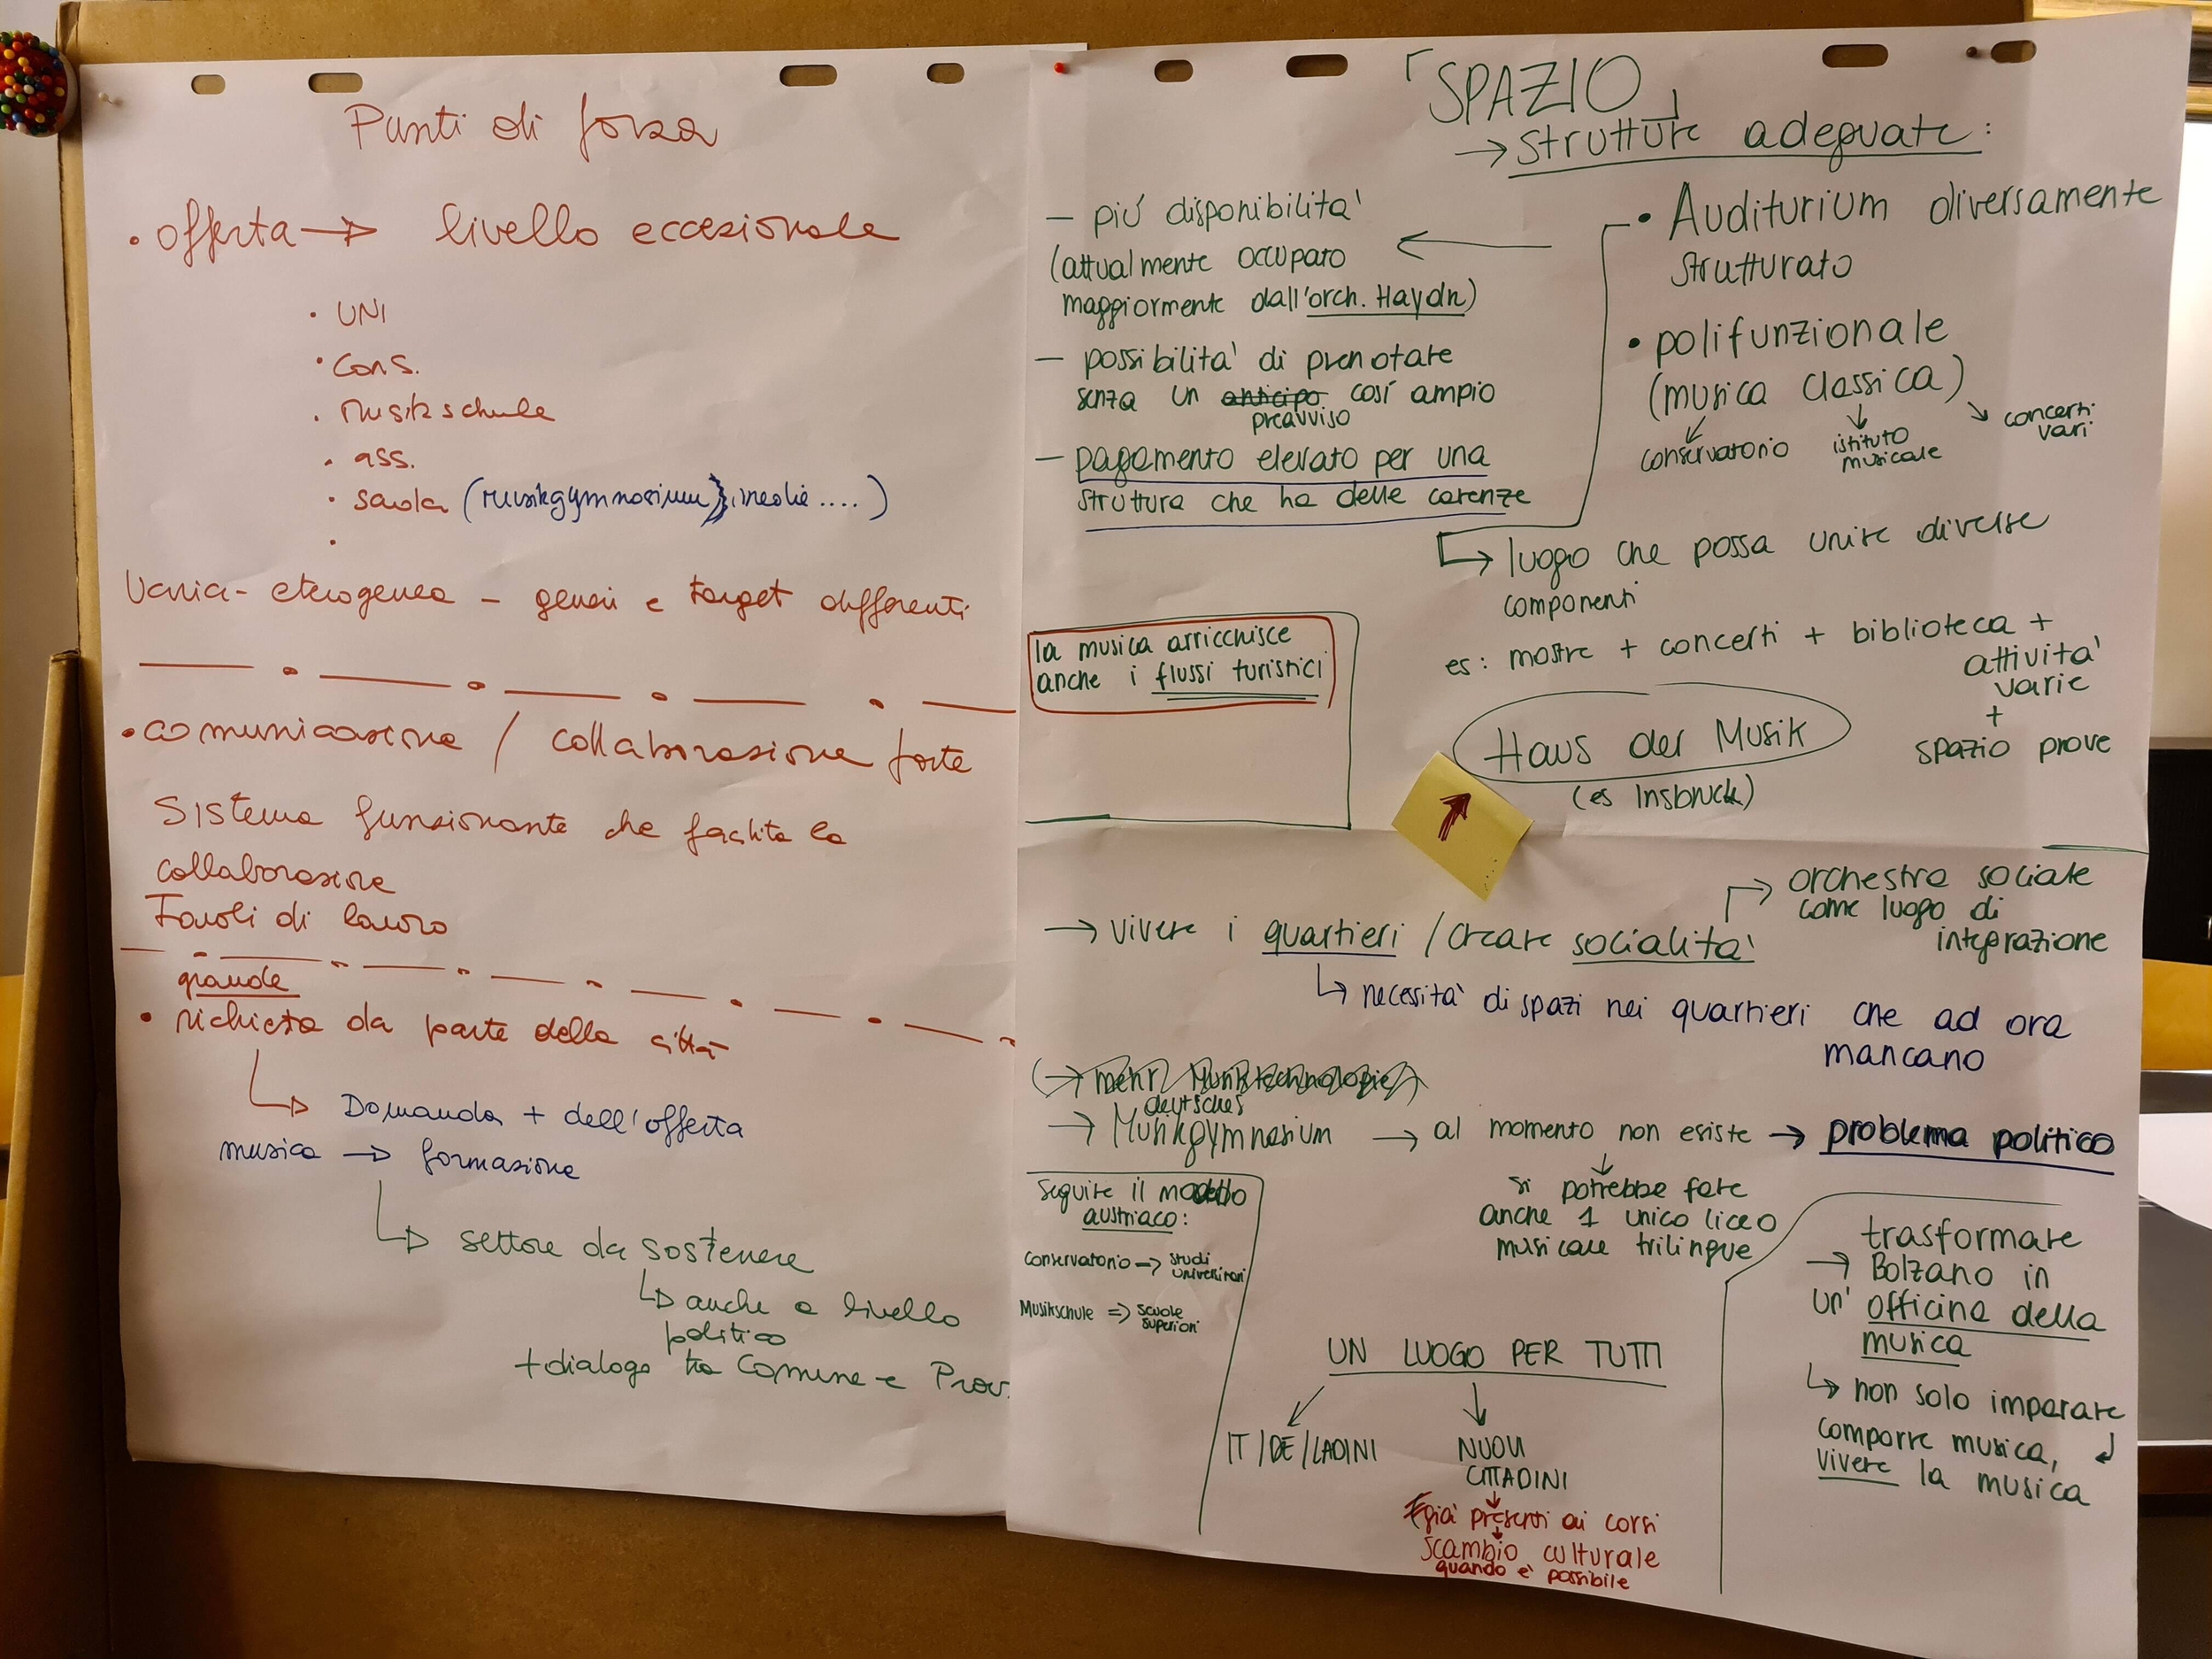 Punti di forza
• offerta → livello eccezionale
• UNI
• Cons.
• Musikschule
• ass.
• scuola (Musikgymnasium, medie ....)
•
Varia - eterogenea - generi e target differenti
• comunicazione / collaborazione forte
Sistema funzionante che facilita la
collaborazione
Tavoli di lavoro
grande
• richiesta da parte della città
↳ Domanda + dell'offerta
musica → formazione
↳ settore da sostenere
↳ anche a livello
politico
+ dialogo tra Comune e Prov.
「SPAZIO」
→ strutture adeguate:
• Auditurium diversamente
strutturato
• polifunzionale
(musica classica)
conservatorio
istituto
musicale
concerti
vari
— piú disponibilita'
(attualmente occupato
maggiormente dall'orch. Haydn)
— possibilita' di prenotare
senza un anticipo così ampio
preavviso
— pagamento elevato per una
struttura che ha delle carenze
↳ luogo che possa unire diverse
componenti
es: mostre + concerti + biblioteca +
attivita'
varie
+
spazio prove
la musica arricchisce
anche i flussi turistici
Haus der Musik
(es Insbruck)
→ vivere i quartieri / creare socialita'
→ orchestra sociale
come luogo di
integrazione
↳ necessita' di spazi nei quartieri che ad ora
mancano
(→ mehr Musiktechnologie)
deutsches
→ Musikgymnasium → al momento non esiste → problema politico
si potrebbe fare
anche 1 unico liceo
musicale trilingue
seguire il modello
austriaco:
conservatorio → studi
universitari
Musikschule ⇒ scuole
superiori
UN LUOGO PER TUTTI
IT / DE / LADINI
NUOVI
CITTADINI
già presenti ai corsi
scambio culturale
quando e' possibile
trasformare
→ Bolzano in
un' officina della
musica
↳ non solo imparare
comporre musica,
vivere la musica